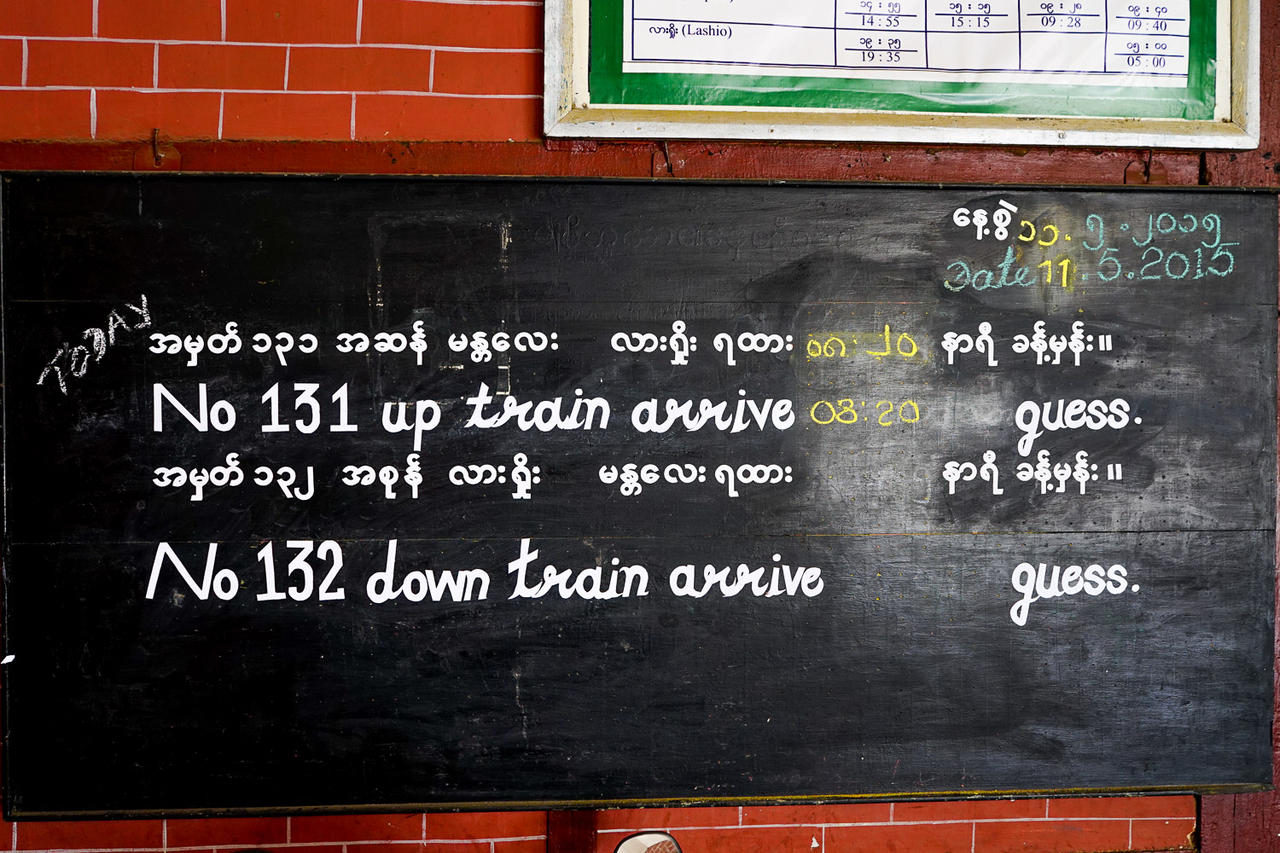 ၁၄ : ၅၅ ၁၅ : ၁၅ ၀၉ : ၂၈ ၀၉ : ၄၀
14 : 55 15 : 15 09 : 28 09 : 40
လားရှိုး (Lashio) ၁၉ : ၃၅ ၀၅ : ၀၀
19 : 35 05 : 00
နေ့စွဲ ၁၁.၅.၂၀၁၅
Date 11.5.2015
TODAY
အမှတ် ၁၃၁ အဆန် မန္တလေး လားရှိုး ရထား ၀၈:၂၀ နာရီ ခန့်မှန်း။
No 131 up train arrive 08:20 guess.
အမှတ် ၁၃၂ အစုန် လားရှိုး မန္တလေး ရထား နာရီ ခန့်မှန်း။
No 132 down train arrive guess.